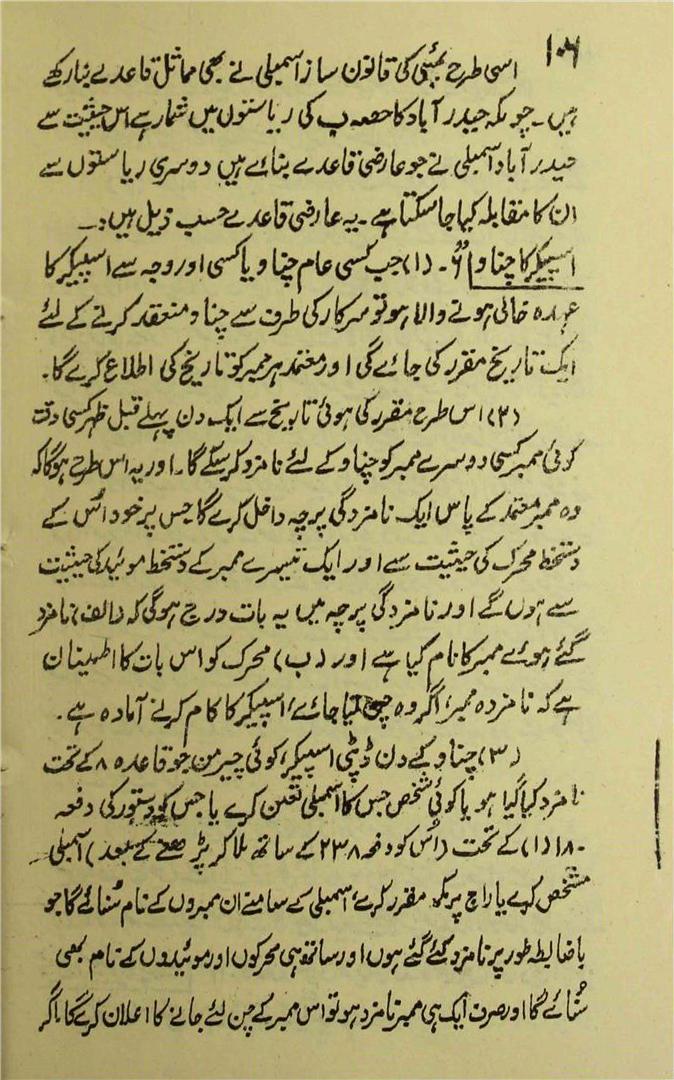 ۱۰۶
اسی طرح بمبئی کی قانون ساز اسمبلی نے بھی مماثل قاعدے بنا رکھے
ہیں۔ چونکہ حیدرآباد کا حصہ ب کی ریاستوں میں شمار ہے اس حیثیت سے
حیدرآباد اسمبلی نے جو عارضی قاعدے بنائے ہیں دوسری ریاستوں سے
ان کا مقابلہ کیا جاسکتا ہے۔ یہ عارضی قاعدے حسب ذیل ہیں:۔
اسپیکر کا چناو ۔ (۱) جب کسی عام چناو یا کسی اور وجہ سے اسپیکر کا
عہدہ خالی ہونے والا ہو تو سرکار کی طرف سے چناو منعقد کرنے کے لئے
ایک تاریخ مقرر کی جائے گی اور معتمد ہر ممبر کو تاریخ کی اطلاع کرے گا۔
(۲) اس طرح مقرر کی ہوئی تاریخ سے ایک دن پہلے قبل ظہر کسی وقت
کوئی ممبر کسی دوسرے ممبر کو چناو کے لئے نامزد کر سکے گا۔ اور یہ اس طرح ہوگا کہ
وہ ممبر معتمد کے پاس ایک نامزدگی پرچہ داخل کرے گا جس پر خود اُس کے
دستخط محرک کی حیثیت سے اور ایک تیسرے ممبر کے دستخط موئید کی حیثیت
سے ہوں گے اور نامزدگی پرچہ میں یہ بات درج ہوگی کہ (الف) نامزد
گئے ہوئے ممبر کا نام کیا ہے اور (ب) محرک کو اس بات کا اطمینان
ہے کہ نامزدہ ممبر، اگر وہ لیا جائے، اسپیکر کا کام کرنے آمادہ ہے۔
(۳) چناو کے دن ڈپٹی اسپیکر، کوئی چیرمن جو قاعدہ ۸ کے تحت
نامزد کیا گیا ہو یا کوئی شخص جس کا اسمبلی تعین کرے یا جس کو دستور کی دفعہ
۱۸۰ (۱) کے تحت (اُس کو دفعہ ۲۳۸ کے ساتھ ملا کر پڑھنے کے بعد) اسمبلی
مشخص کرے یا راج پرمکھ مقرر کرے، اسمبلی کے سامنے ان ممبروں کے نام سُنائے گا جو
باضابطہ طور پر نامزد کئے گئے ہوں اور ساتھ ہی محرکوں اور موئیدوں کے نام بھی
سُنائے گا اور صرف ایک ہی ممبر نامزد ہو تو اس ممبر کے چن لئے جانے کا اعلان کرے گا۔ اگر